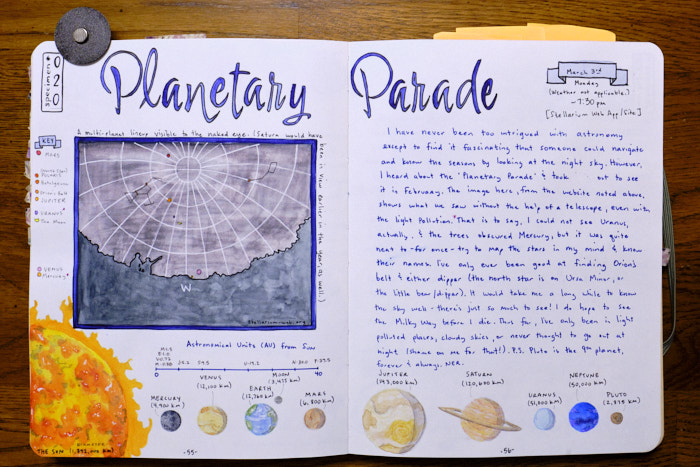 Planetary Parade
specimen #
020
A multi-planet lineup visible to the naked eye. (Saturn would have
been in view earlier in the year, as well.)
KEY
MARS
POLARIS
Betelgeuse
Orion's Belt
JUPITER
URANUS
The Moon
VENUS
Mercury
W
Stellarium-web.org
Astronomical Units (AU) from Sun
0
40
VENUS
(12,100 km)
MOON
(3,475 km)
EARTH
(12,760 km)
MERCURY
(4,900 km)
MARS
(6,800 km)
THE SUN
-55-
March 3rd
Monday
(Weather not applicable.)
~7:30 pm
[Stellarium Web App/Site.]
I have never been too intrigued with astronomy
except to find it fascinating that someone could navigate
and know the seasons by looking at the night sky. However,
I heard about the "Planetary Parade" & took out to see
it in February. The image here, from the website noted above,
shows what we saw without the help of a telescope, even with
the light pollution. That is to say, I could not see Uranus,
actually, & the trees obscured Mercury, but it was quite
neat to - for once - try to map the stars in my mind & know
their names. I've only ever been good at finding Orion's
belt & either dipper (the north star is on Ursa Minor, or
the little bear/dipper). It would take me a long while to know
the sky well - there's just so much to see! I do hope to see
the Milky Way before I die. Thus far, I've only been in light
polluted places, cloudy skies, or never thought to go out at
night (shame on me for that!). P.S. Pluto is the 9th planet,
forever & always. NER.
JUPITER
(143,000 km)
SATURN
(120,600 km)
URANUS
(51,000 km)
NEPTUNE
(50,000 km)
PLUTO
-56-